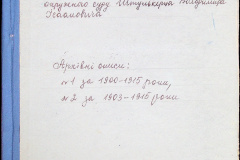 окружного суду Штункеря Владимира
Исааковича
Архівні описи:
№1 за 1900-1915 роки,
№2 за 1903-1915 роки